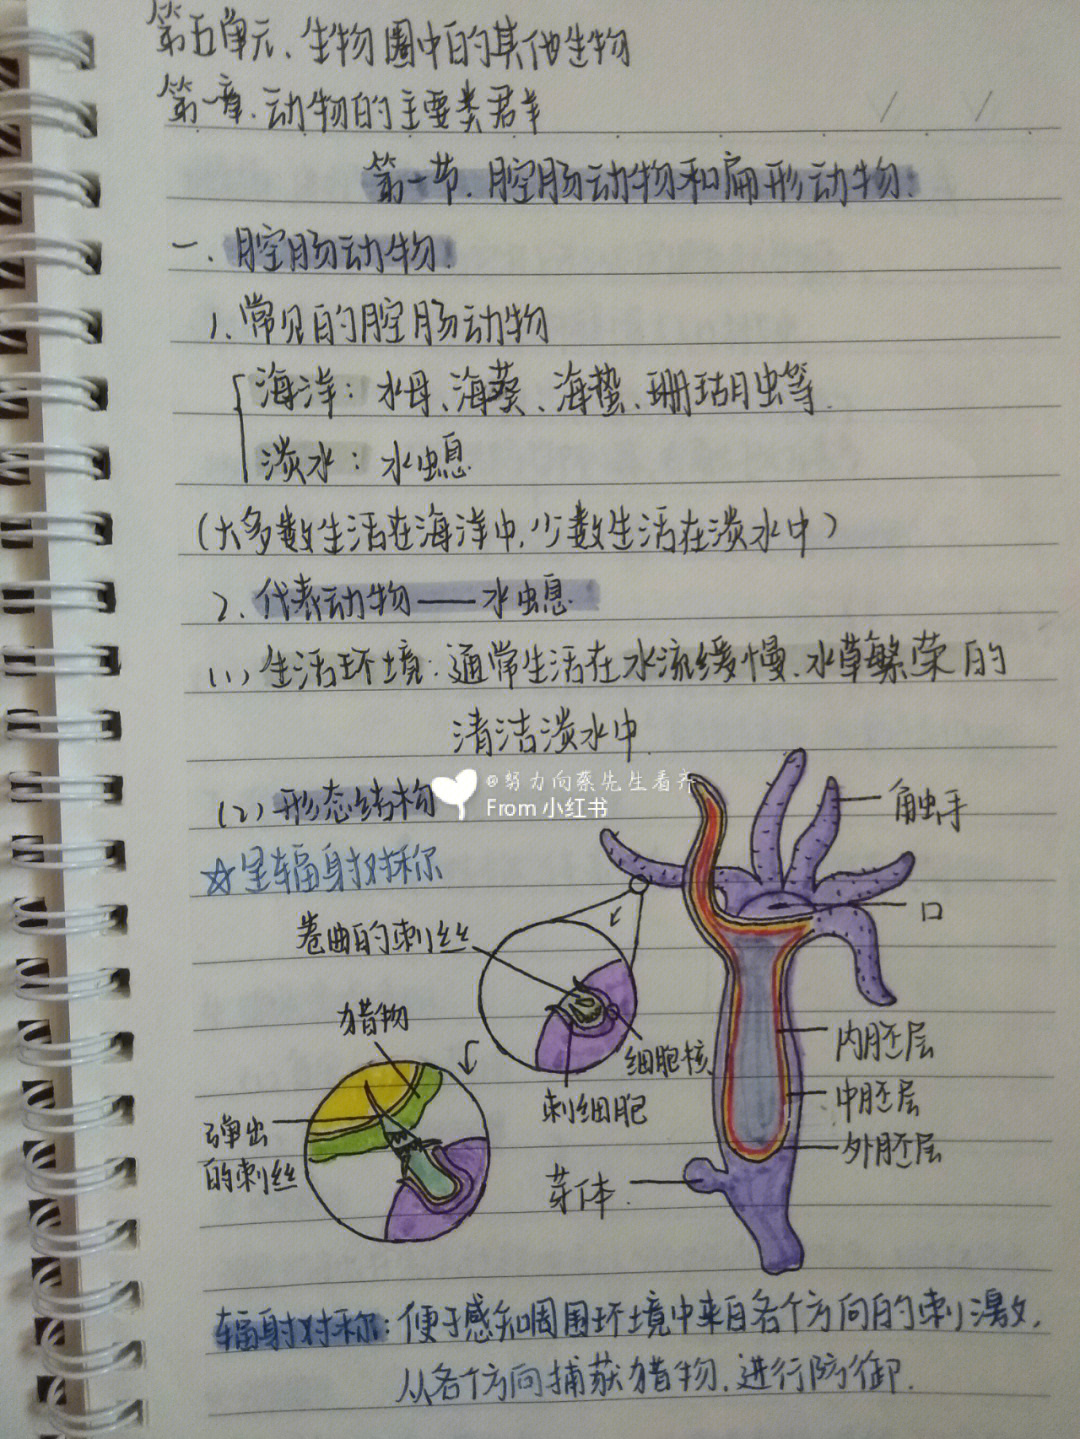 第五单元、生物圈中的其他生物
第一章.动物的主要类群
第一节.腔肠动物和扁形动物!
一.腔肠动物!
1.常见的腔肠动物
海洋:水母、海葵、海蜇、珊瑚虫等.
淡水:水螅.
(大多数生活在海洋中,少数生活在淡水中)
2.代表动物——水螅.
(1)生活环境:通常生活在水流缓慢.水草繁荣的
清洁淡水中.
(2)形态结构
@努力向蔡先生看齐
From 小红书
触手
☆呈辐射对称
口
卷曲的刺丝
猎物
内胚层
细胞核
中胚层
刺细胞
弹出
的刺丝
外胚层
芽体.
辐射对称:便于感知周围环境中来自各个方向的刺激,
从各个方向捕获猎物.进行防御.